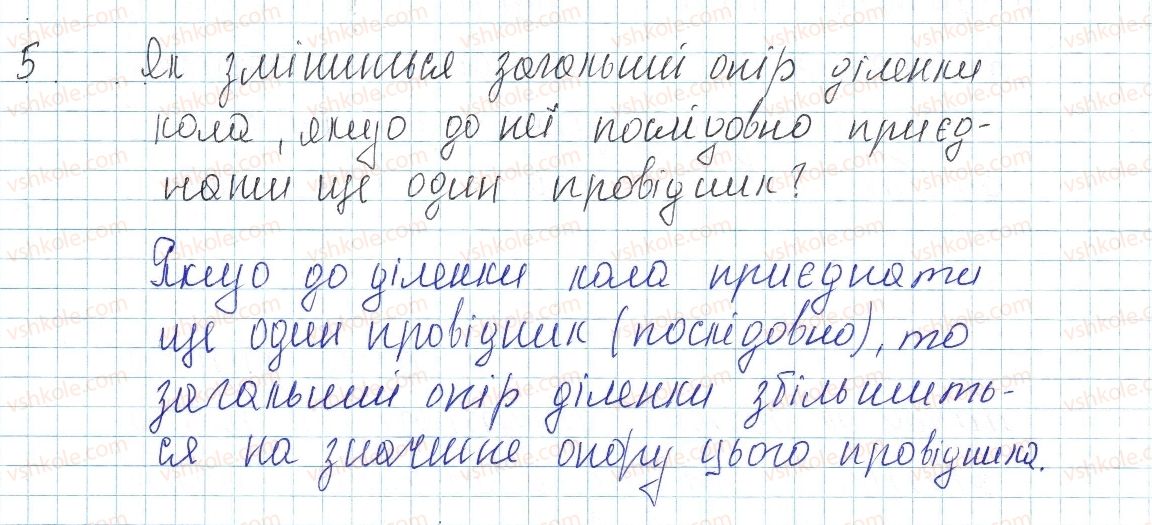 5. Як зміниться загальний опір ділянки
кола, якщо до неї послідовно приєд-
нати ще один провідник?
Якщо до ділянки кола приєднати
ще один провідник (послідовно), то
загальний опір ділянки збільшить-
ся на значення опору цього провідника.